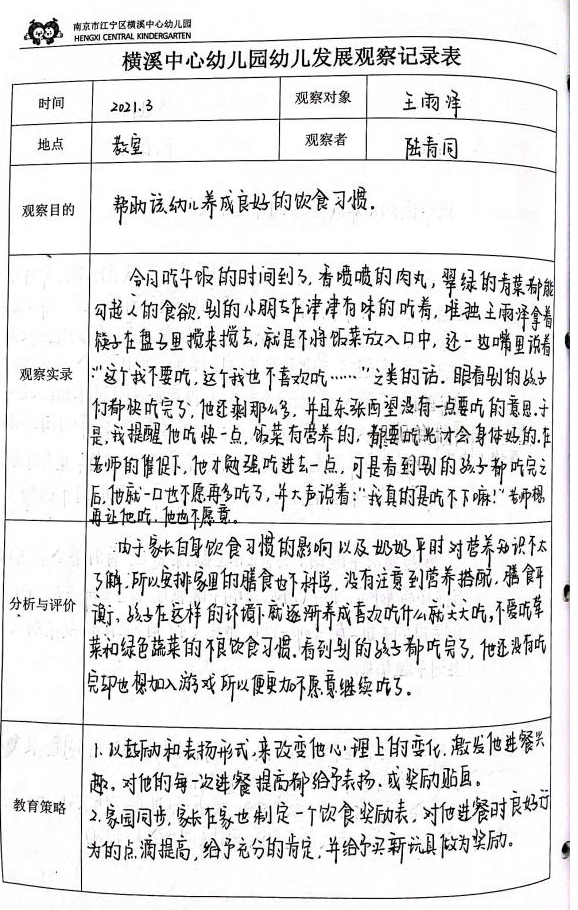 南京市江宁区横溪中心幼儿园
HENGXI CENTRAL KINDERGARTEN
横溪中心幼儿园幼儿发展观察记录表
时间 2021.3 观察对象 王雨泽
地点 教室 观察者 陆青同
观察目的 帮助该幼儿养成良好的饮食习惯.
观察实录
今日吃午饭的时间到了,香喷喷的肉丸,翠绿的青菜都能
勾起人的食欲.别的小朋友在津津有味的吃着,唯独王雨泽拿着
筷子在盘子里搅来搅去,就是不将饭菜放入口中,还一边嘴里说着
:“这个我不要吃,这个我也不喜欢吃……”之类的话.眼看别的孩子
们都快吃完了,他还剩那么多,并且东张西望没有一点要吃的意思.于
是,我提醒他吃快一点,饭菜有营养的,都要吃光才会身体好的.在
老师的催促下,他才勉强吃进去一点,可是看到别的孩子都吃完之
后,他就一口也不愿再多吃了,并大声说着:“我真的是吃不下嘛!”老师想
再让他吃,他也不愿意.
分析与评价
由于家长自身饮食习惯的影响以及奶奶平时对营养知识不太
了解.所以安排家里的膳食也不科学,没有注意到营养搭配,膳食平
衡.孩子在这样的环境下就逐渐养成喜欢吃什么就天天吃,不爱吃荤
菜和绿色蔬菜的不良饮食习惯.看到别的孩子都吃完了,他还没有吃
完却也想加入游戏所以便更加不愿意继续吃了.
教育策略
1.以鼓励和表扬形式.来改变他心理上的变化.激发他进餐兴
趣.对他的每一次进餐提高都给予表扬.或奖励贴画。
2.家园同步.家长在家也制定一个饮食奖励表.对他进餐时良好行
为的点滴提高,给予充分的肯定.并给予买新玩具做为奖励.